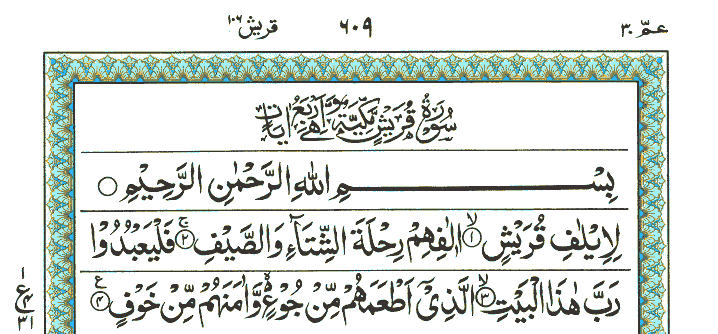 عمّ ٣٠ ٦٠٩ قريش ١٠٦
سُوْرَةُ قُرَيْشٍ مَّكِّيَّةٌ وَّهِيَ اَرْبَعُ اٰيَاتٍ
بِسْمِ اللّٰهِ الرَّحْمٰنِ الرَّحِيْمِ ○
لِاِيْلٰفِ قُرَيْشٍ ۙ﴿١﴾ اٖلٰفِهِمْ رِحْلَةَ الشِّتَآءِ وَالصَّيْفِ ۚ﴿٢﴾ فَلْيَعْبُدُوْا
رَبَّ هٰذَا الْبَيْتِ ۙ﴿٣﴾ الَّذِيْٓ اَطْعَمَهُمْ مِّنْ جُوْعٍ ۙ۬ وَّاٰمَنَهُمْ مِّنْ خَوْفٍ ﴿٤﴾
١
ع
٤
٣١